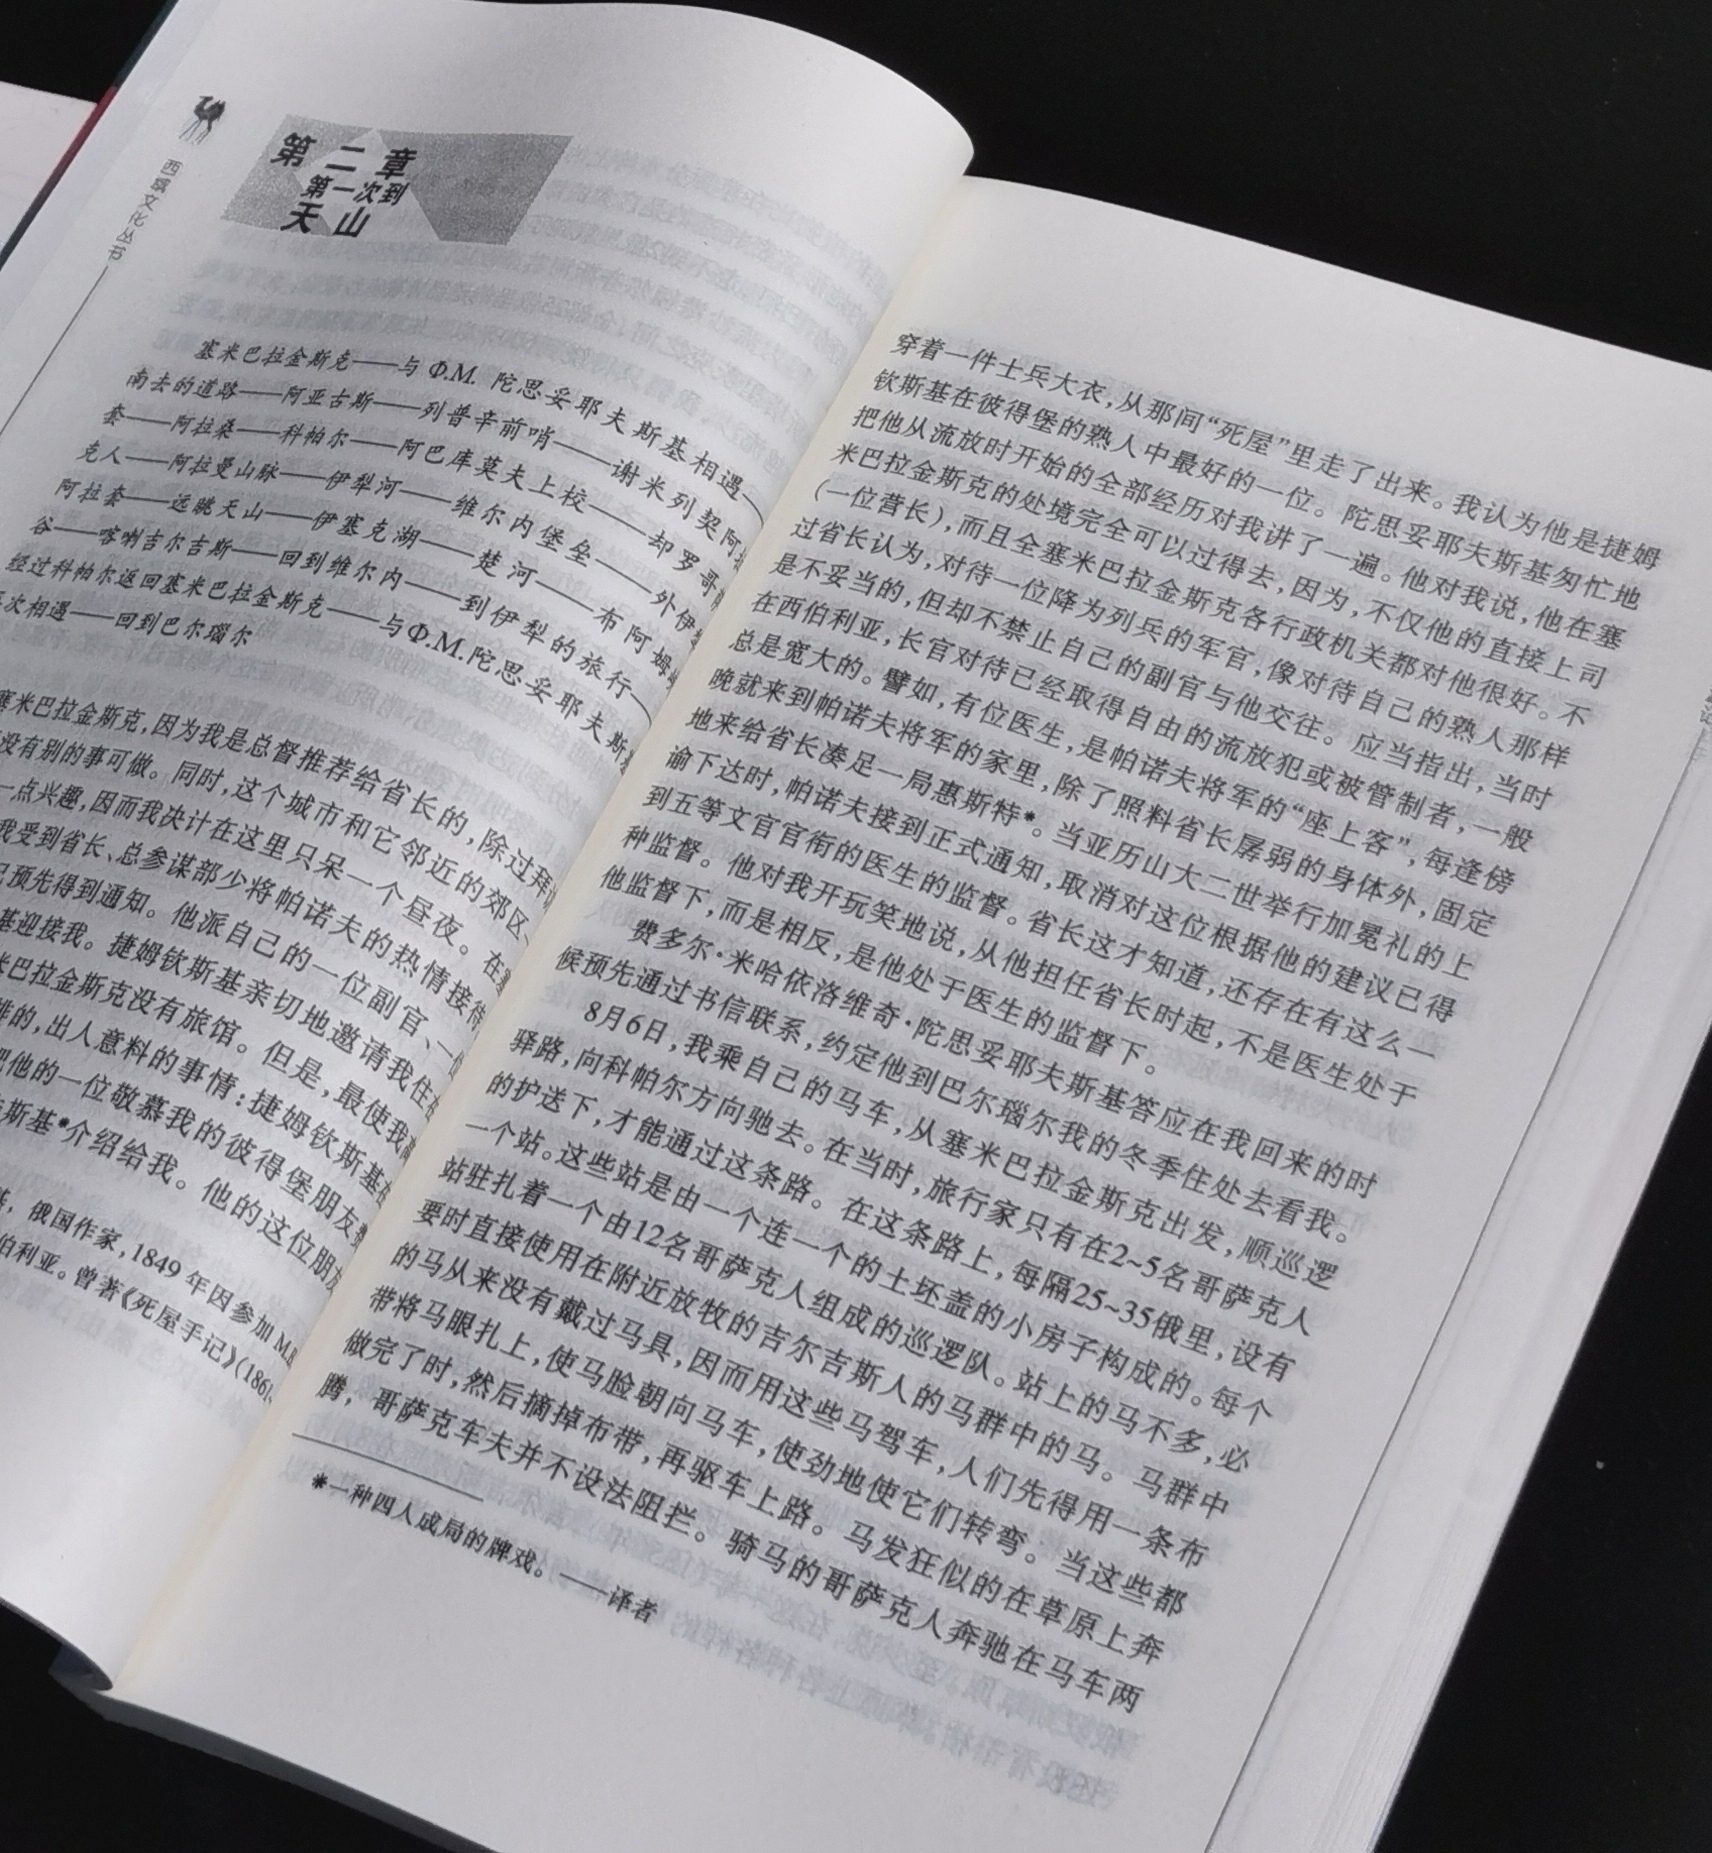 西域文化丛书
第二章
第一次到
天山
塞米巴拉金斯克——与Ф.М. 陀思妥耶夫斯基相遇—
南去的道路——阿亚古斯——列普辛前哨——谢米列契阿拉
套——阿拉桑——科帕尔——阿巴库莫夫上校——却罗哥
克人——阿拉曼山脉——伊犁河——维尔内堡垒——外伊犁
阿拉套——远眺天山——伊塞克湖——楚河——布阿姆
谷——喀喇吉尔吉斯——回到维尔内——到伊犁的旅行—
经过科帕尔返回塞米巴拉金斯克——与Ф.М.陀思妥耶夫斯
次相遇——回到巴尔瑙尔
塞米巴拉金斯克,因为我是总督推荐给省长的,除过拜
没有别的事可做。同时,这个城市和它邻近的郊区、
一点兴趣,因而我决计在这里只呆一个昼夜。在塞
我受到省长、总参谋部少将帕诺夫的热情接待
已预先得到通知。他派自己的一位副官、一
基迎接我。捷姆钦斯基亲切地邀请我住在
米巴拉金斯克没有旅馆。但是,最使我
排的,出人意料的事情:捷姆钦斯基
把他的一位敬慕我的彼得堡朋友
斯基*介绍给我。他的这位朋友
基,俄国作家,1849年因参加M.
伯利亚。曾著《死屋手记》(1861
穿着一件士兵大衣,从那间“死屋”里走了出来。我认为他是捷姆
钦斯基在彼得堡的熟人中最好的一位。陀思妥耶夫斯基匆忙地
把他从流放时开始的全部经历对我讲了一遍。他对我说,他在塞
米巴拉金斯克的处境完全可以过得去,因为,不仅他的直接上司
(一位营长),而且全塞米巴拉金斯克各行政机关都对他很好。不
过省长认为,对待一位降为列兵的军官,像对待自己的熟人那样
是不妥当的,但却不禁止自己的副官与他交往。应当指出,当时
在西伯利亚,长官对待已经取得自由的流放犯或被管制者,一般
总是宽大的。譬如,有位医生,是帕诺夫将军的“座上客”,每逢傍
晚就来到帕诺夫将军的家里,除了照料省长孱弱的身体外,固定
地来给省长凑足一局惠斯特*。当亚历山大二世举行加冕礼的上
谕下达时,帕诺夫接到正式通知,取消对这位根据他的建议已得
到五等文官官衔的医生的监督。省长这才知道,还存在有这么一
种监督。他对我开玩笑地说,从他担任省长时起,不是医生处于
他监督下,而是相反,是他处于医生的监督下。
费多尔·米哈依洛维奇·陀思妥耶夫斯基答应在我回来的时
候预先通过书信联系,约定他到巴尔瑙尔我的冬季住处去看我。
8月6日,我乘自己的马车,从塞米巴拉金斯克出发,顺巡逻
驿路,向科帕尔方向驰去。在当时,旅行家只有在2~5名哥萨克人
的护送下,才能通过这条路。在这条路上,每隔25~35俄里,设有
一个站。这些站是由一个连一个的土坯盖的小房子构成的。每个
站驻扎着一个由12名哥萨克人组成的巡逻队。站上的马不多,必
要时直接使用在附近放牧的吉尔吉斯人的马群中的马。马群中
的马从来没有戴过马具,因而用这些马驾车,人们先得用一条布
带将马眼扎上,使马脸朝向马车,使劲地使它们转弯。当这些都
做完了时,然后摘掉布带,再驱车上路。马发狂似的在草原上奔
腾,哥萨克车夫并不设法阻拦。骑马的哥萨克人奔驰在马车两
*一种四人成局的牌戏。——译者